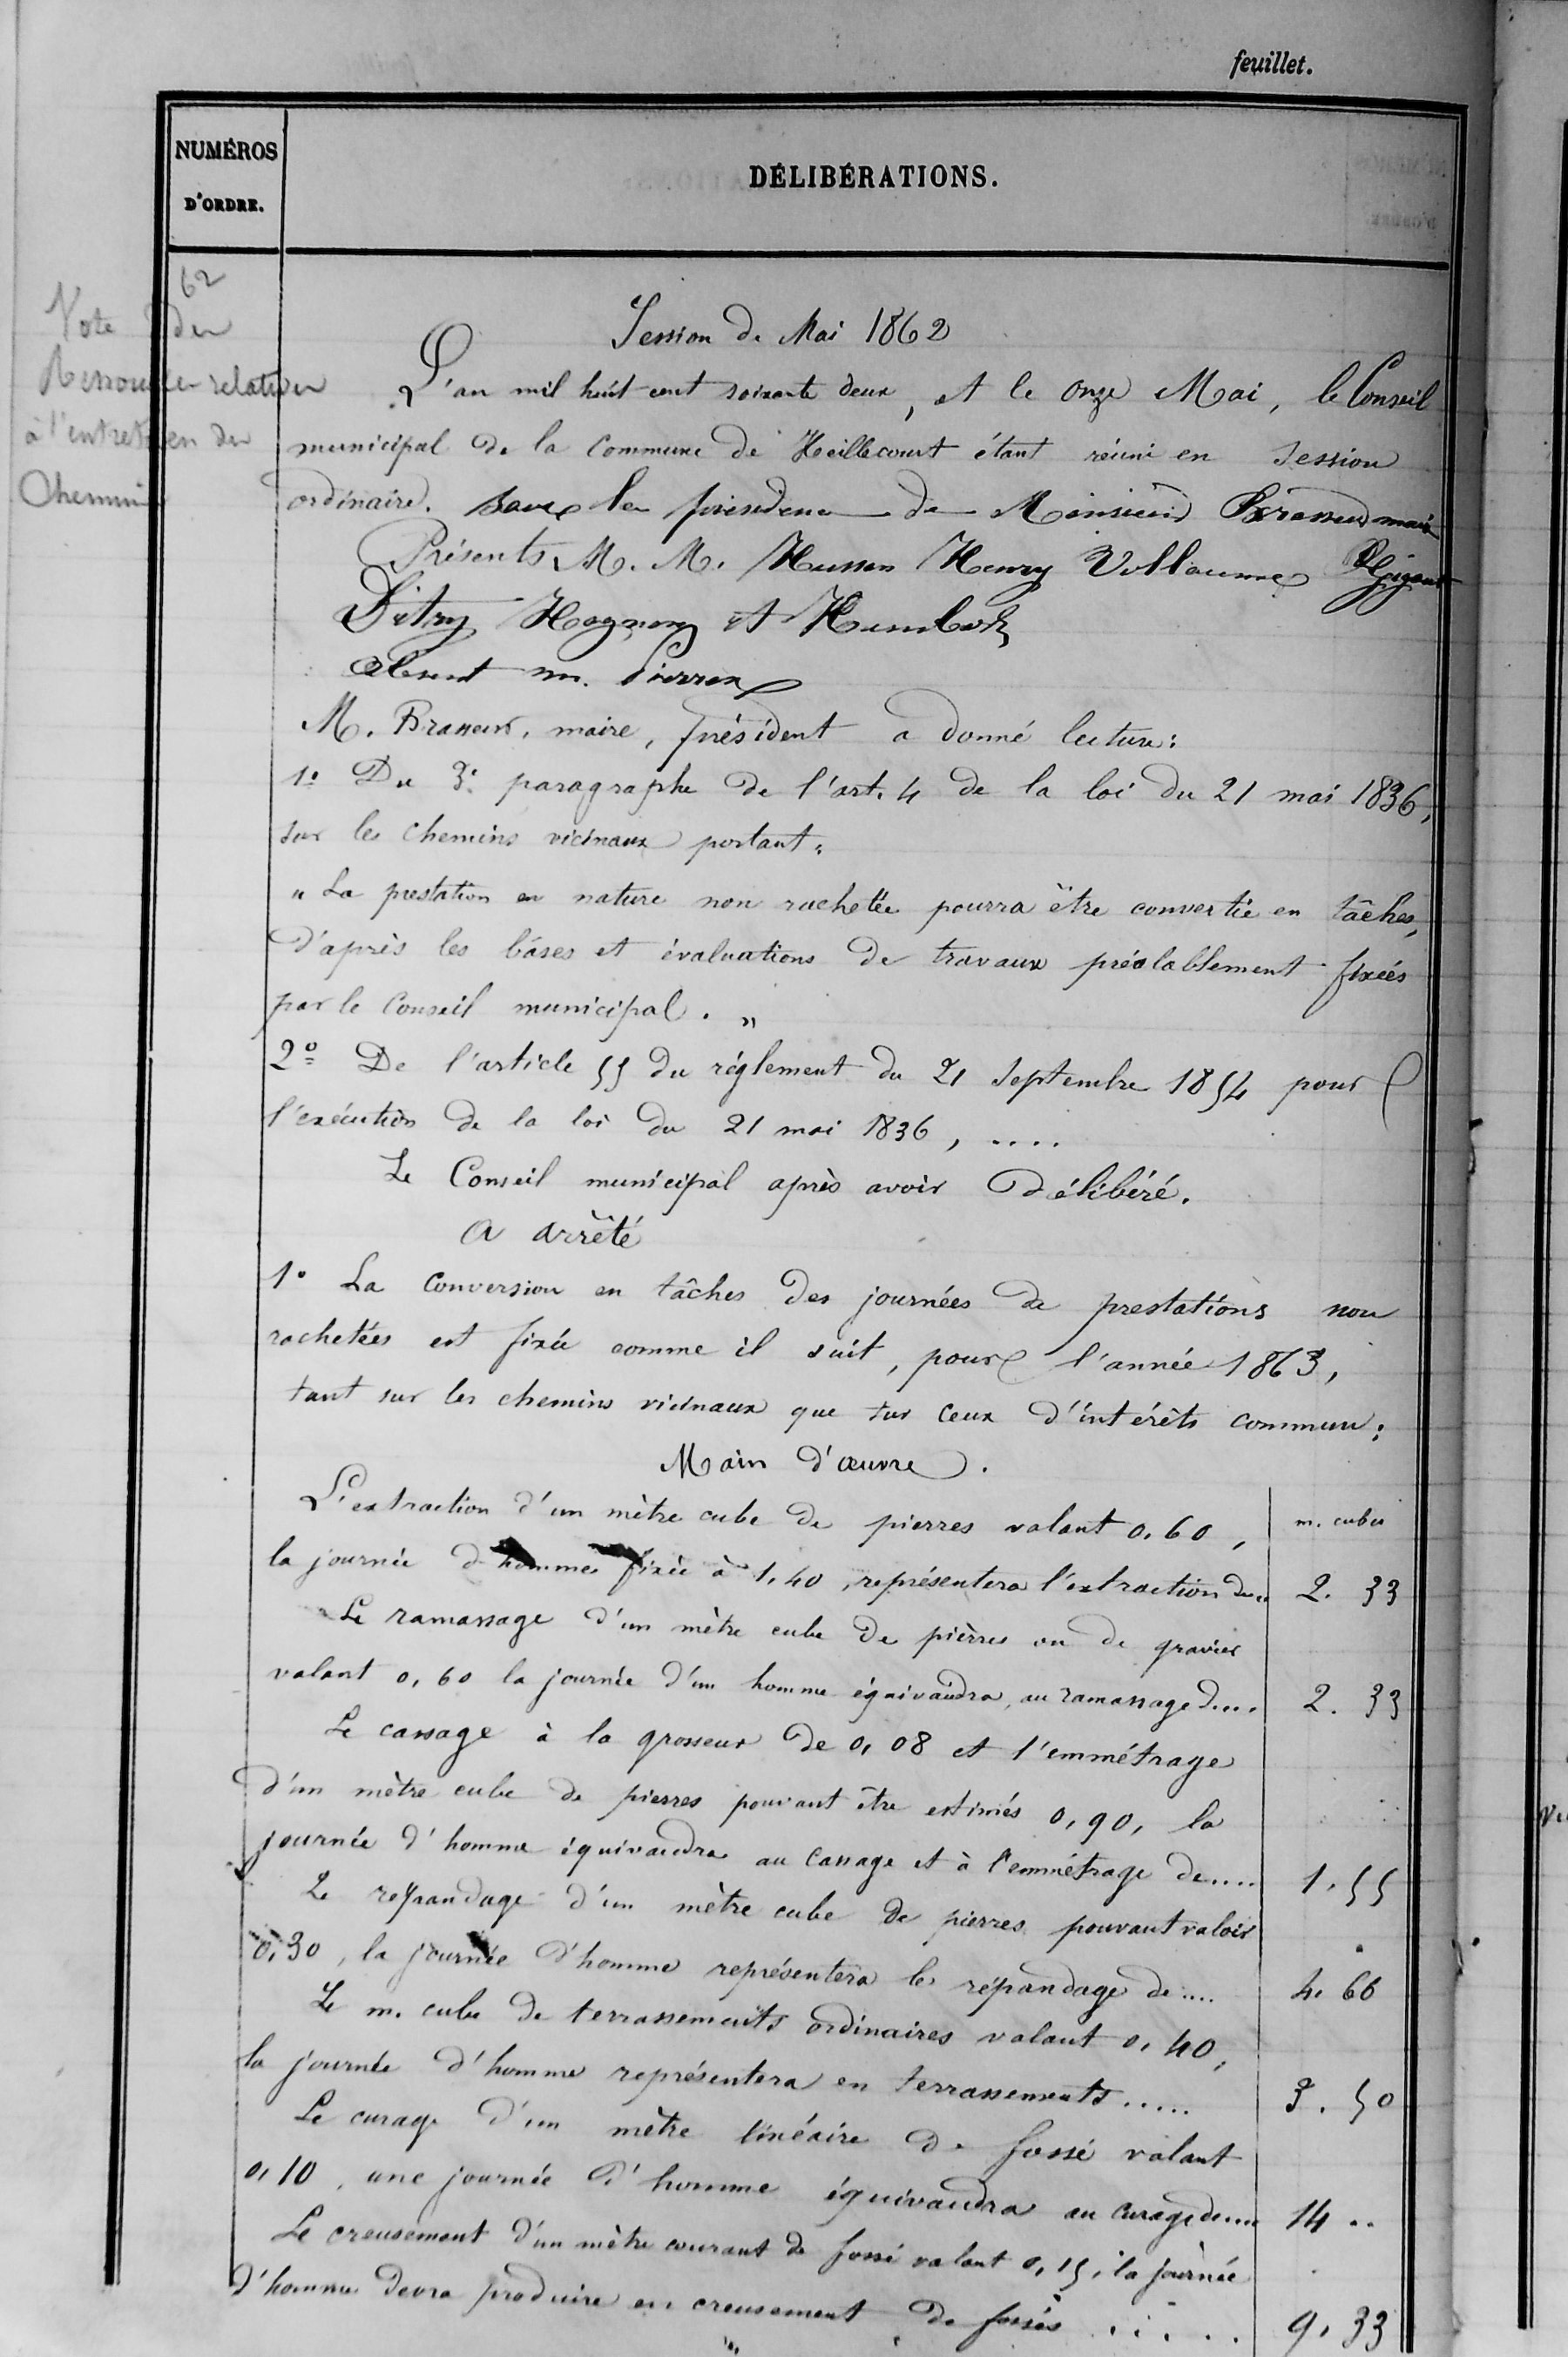 feuillet.
NUMÉROS
D'ORDRE.
DÉLIBÉRATIONS.
62
Vote des
Ressources relatives
à l'entretien des
Chemins
Session de Mai 1862
L'an mil huit cent soixante deux, et le onze Mai, le Conseil
municipal de la commune de Heillecourt étant réuni en session
ordinaire. sous la présidence de Monsieur Brasseur maire
Présents M. M. Husson Henry Vuillaume
Ditry Hognon et Humbert
absent m. Pierron
M. Brasseur, maire, président a donné lecture:
1º Du 3e paragraphe de l'art. 4 de la loi du 21 mai 1836,
sur les chemins vicinaux portant:
" La prestation en nature non rachetée pourra être convertie en tâches,
d'après les bâses et évaluations de travaux préalablement fixées
par le Conseil municipal. "
2º De l'article 55 du réglement du 21 septembre 1854 pour
l'exécution de la loi du 21 mai 1836, ....
Le Conseil municipal après avoir délibéré.
a arrêté
1º La conversion en tâches des journées de prestations non
rachetées est fixée comme il suit, pour l'année 1863,
tant sur les chemins vicinaux que sur ceux d'intérêts commun:
Main d'œuvre.
L'extraction d'un mètre cube de pierres valant 0.60, m. cubes
la journée d'homme fixée à 1,40, représentera l'extraction de.. 2. 33
Le ramassage d'un mètre cube de pierres ou de gravier
valant 0,60 la journée d'un homme équivaudra, au ramassage d.... 2. 33
Le cassage à la grosseur de 0,08 et l'emmétrage
d'un mètre cube de pierres pouvant être estimés 0,90, la
journée d'homme équivaudra au cassage et à l'emmétrage de.... 1,55
Le répandage d'un mètre cube de pierres pouvant valoir
0,30, la journée d'homme représentera le répandage de.... 4. 66
Le m. cube de terrassements ordinaires valant 0,40,
la journée d'homme représentera en terrassements..... 3. 50
Le curage d'un mètre linéaire de fossé valant
0,10, une journée d'homme équivaudra au curage de.... 14 ..
Le creusement d'un mètre courant de fossé valant 0,15, la journée
d'homme devra produire en creusement de fossés ..... 9. 33